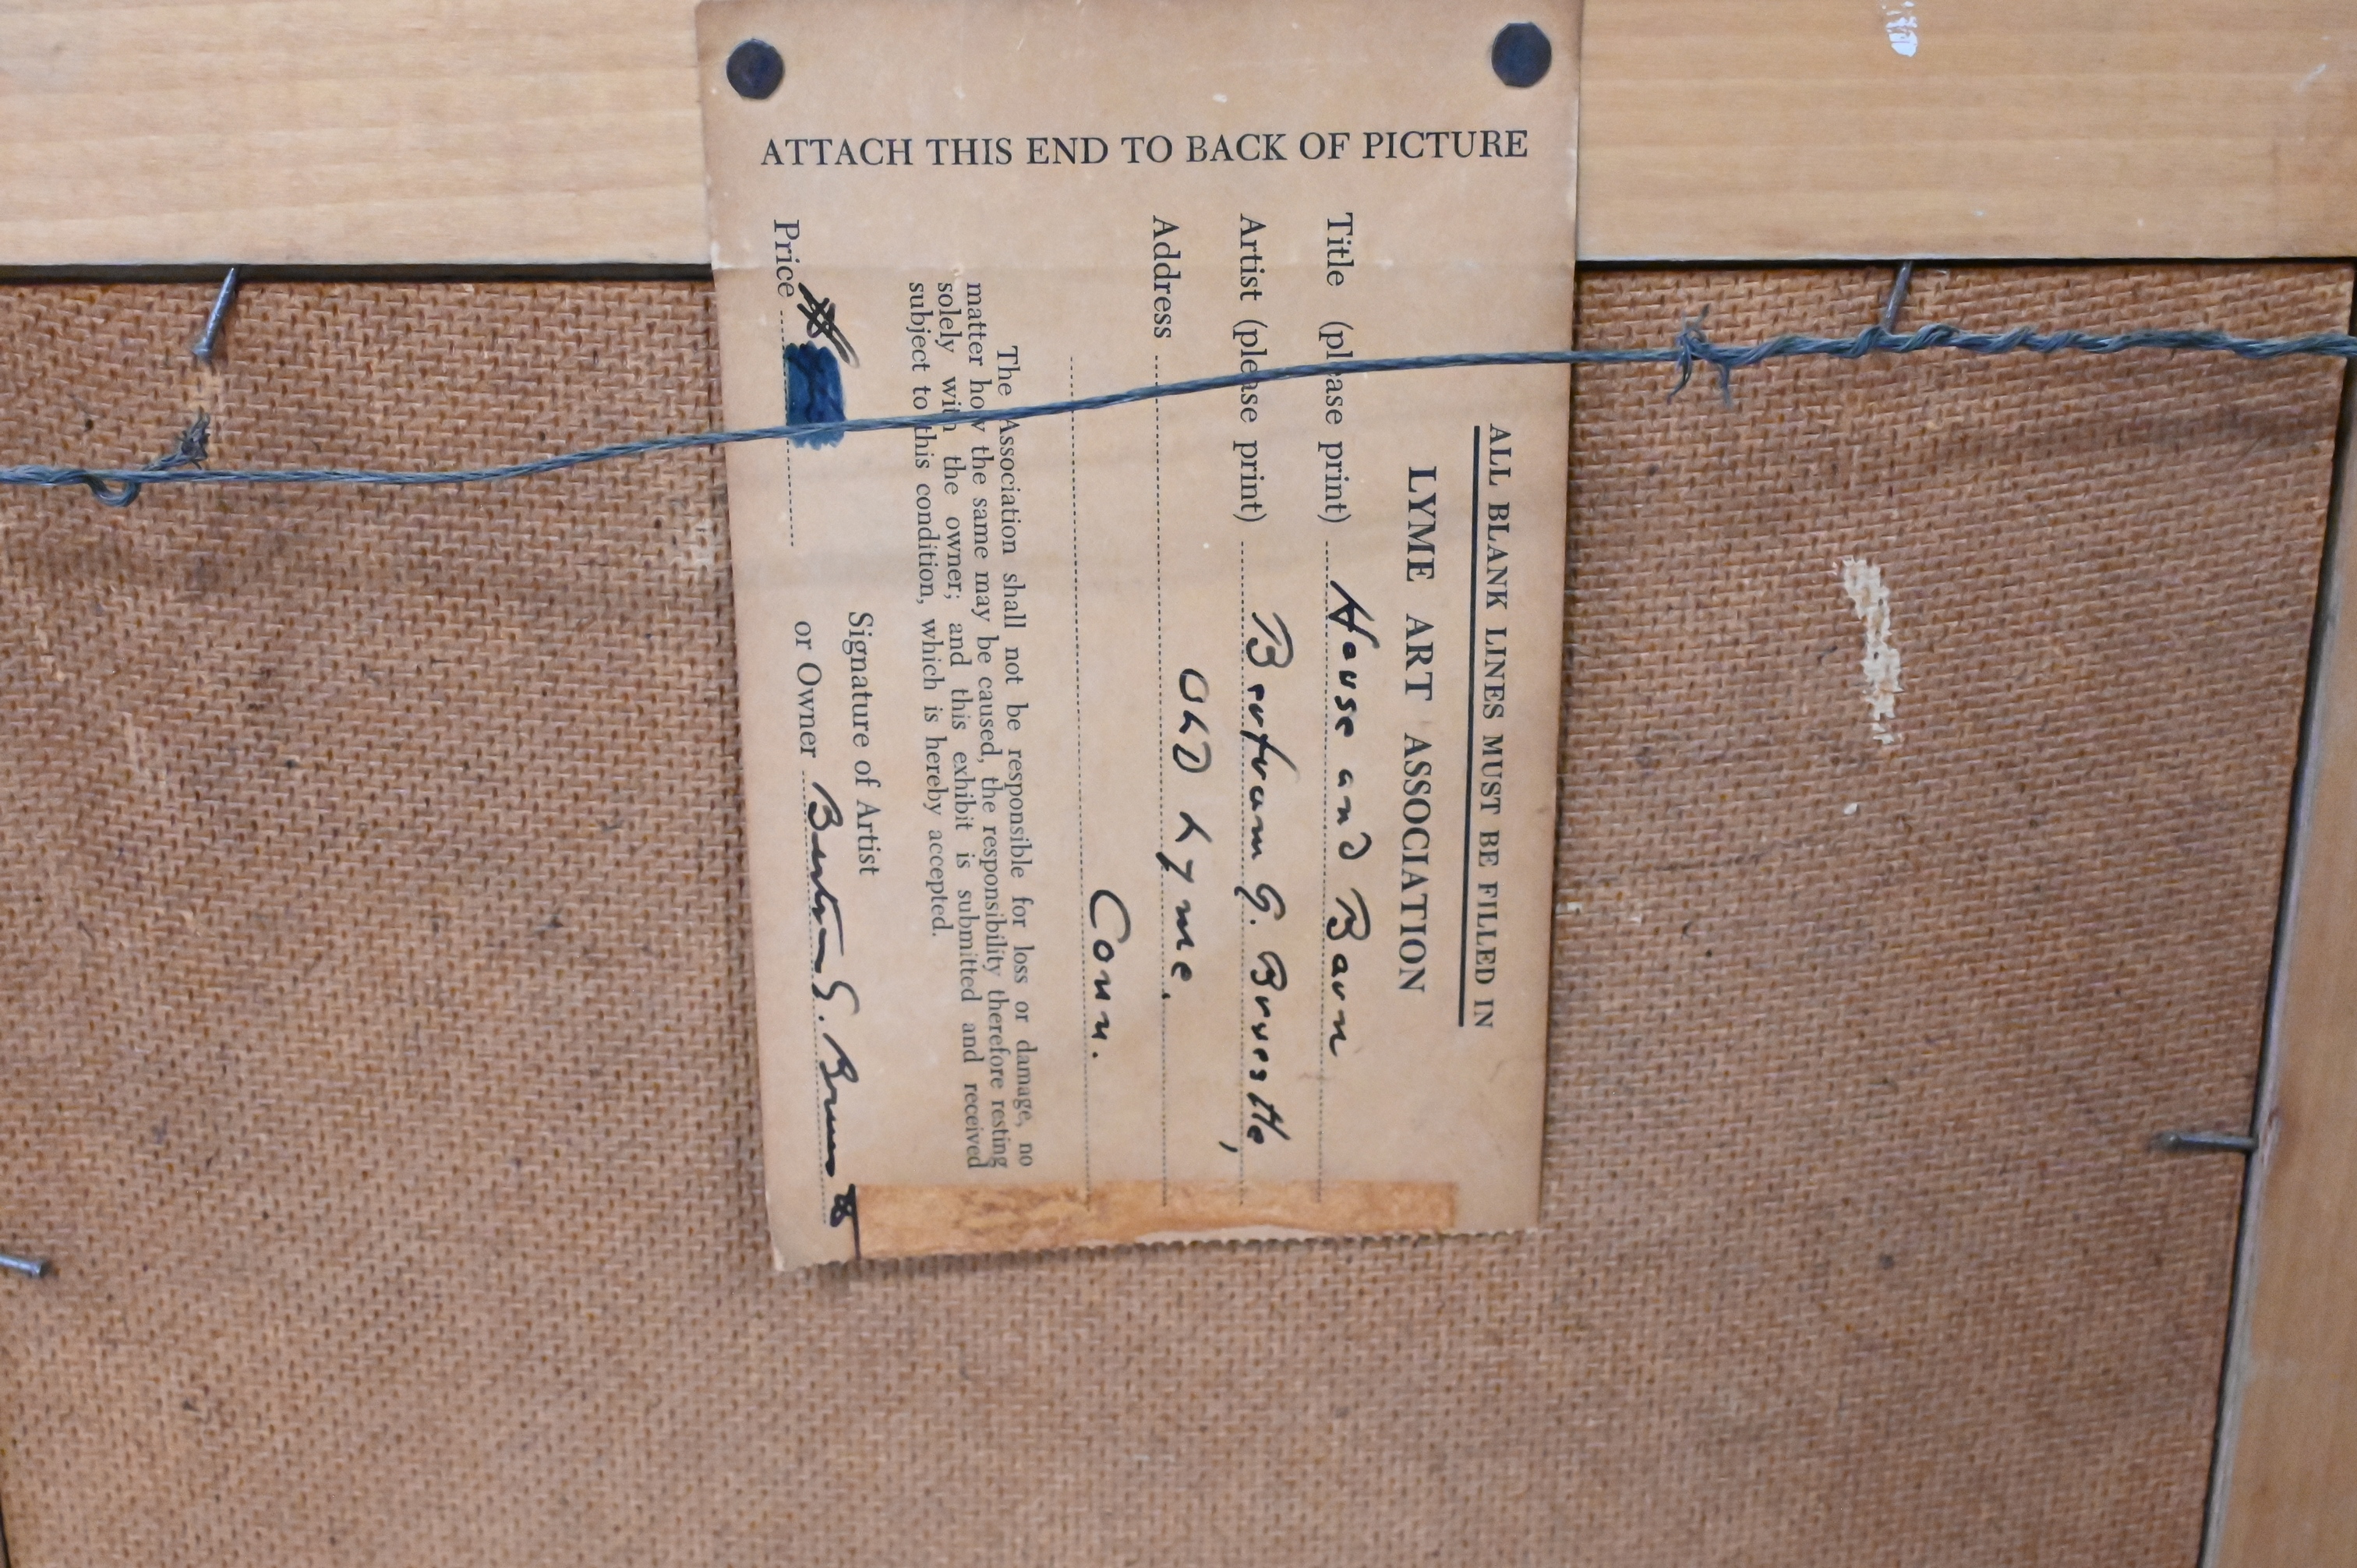 ATTACH THIS END TO BACK OF PICTURE
ALL BLANK LINES MUST BE FILLED IN
LYME ART ASSOCIATION
Title (please print) House and Barn
Artist (please print) Bertram G. Bruestle,
Address OLD Lyme.
Conn.
The Association shall not be responsible for loss or damage, no
matter how the same may be caused, the responsibility therefore resting
solely with the owner; and this exhibit is submitted and received
subject to this condition, which is hereby accepted.
Signature of Artist
Price $ or Owner Bertram G.